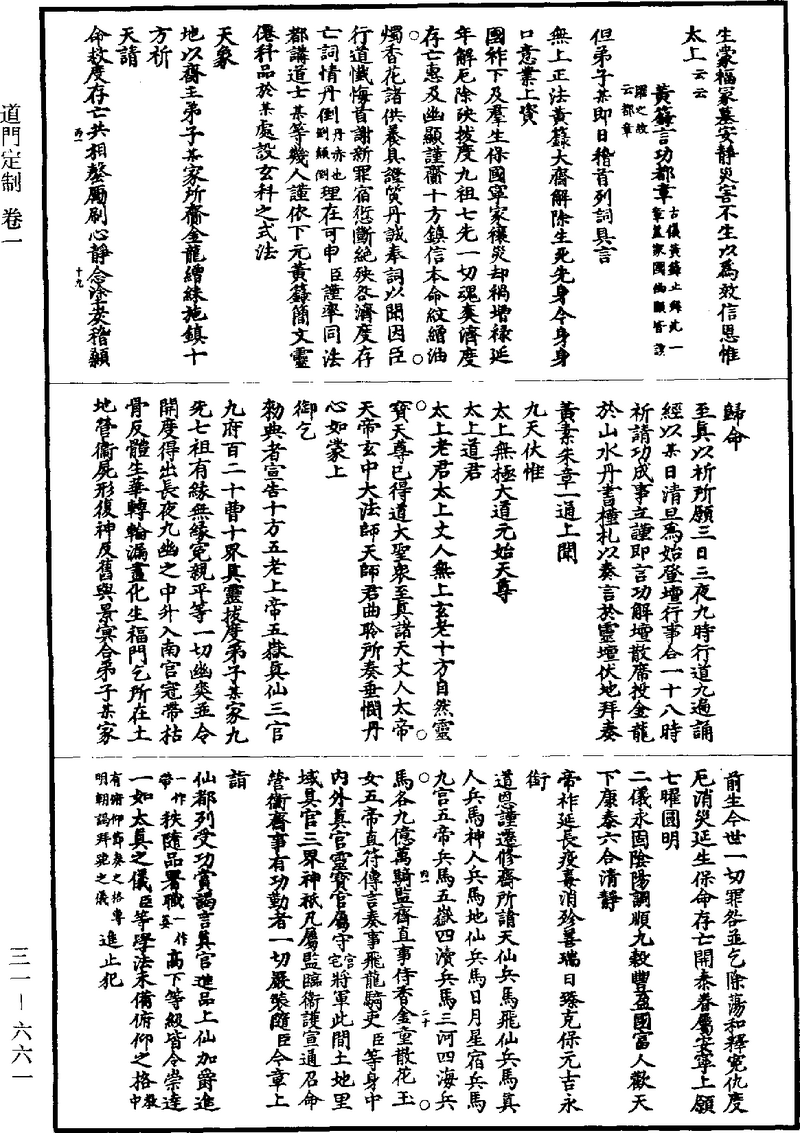 道門定制 卷一
三一—六六一
生蒙福冢墓安靜災害不生以爲效信恩惟
太上云云
黃籙言功都章古儀黃籙止拜此一章蓋家國幽顯皆該
云都章
但弟子某即日稽首列詞具言
無上正法黃籙大齋解除生死先身今身身
口意業上資
國祚下及羣生保國寧家禳災却禍增祿延
年解厄除殃拔度九祖七先一切魂爽濟度
存亡惠及幽顯謹齎十方鎮信本命紋繒油
燭香花諸供養具證質丹誠奉詞以聞因臣
行道懺悔首謝新罪宿愆斷絕殃咎濟度存
亡詞情丹倒丹赤也倒傾倒理在可申臣謹率同法
都講道士某等幾人謹依下元黃籙簡文靈
僊科品於某處設玄科之式法
天象
地以齋主弟子某家所齎金龍繒綵施鎮十
方祈
天請
命救度存亡共相磬厲刷心靜念塗炭稽顙
丙一
十九
歸命
至真以祈所願三日三夜九時行道九遍誦
經以某日清旦爲始登壇行事合一十八時
祈請功成事立謹即言功解壇散席投金龍
於山水丹書槿札以奏言於靈壇伏地拜奏
黃素朱章一通上聞
九天伏惟
太上無極大道元始天尊
太上道君
太上老君太上丈人無上玄老十方自然靈
寶天尊已得道大聖衆至真諸天丈人太帝
天帝玄中大法師天師君曲聆所奏垂憫丹
心如蒙上
御乞
勑典者宣告十方五老上帝五嶽真仙三官
九府百二十曹十界真靈拔度弟子某家九
先七祖有緣無緣寃親平等一切幽爽並令
開度得出長夜九幽之中升入南宮冠帶枯
骨反體生華轉輪漏盡化生福門乞所在土
地營衞屍形復神反舊與景冥合弟子某家
前生今世一切罪咎並乞除蕩和釋寃仇度
厄消災延生保命存亡開泰眷屬安寧上願
七曜圓明
二儀永固陰陽調順九穀豐盈國富人歡天
下康泰六合清靜
帝祚延長疫毒消殄善瑞日臻克保元吉永
銜
道恩謹遷修齋所請天仙兵馬飛仙兵馬真
人兵馬神人兵馬地仙兵馬日月星宿兵馬
九宮五帝兵馬五嶽四瀆兵馬三河四海兵
馬各九億萬騎監齋直事侍香金童散花玉
女五帝直符傳言奏事飛龍騎吏臣等身中
內外真官靈寶官屬守宅將軍此間土地里
域真官三界神祇凡屬監臨衞護宣通召命
營衞齋事有功勤者一切嚴裝隨臣今章上
詣
仙都列受功賞謁言真官進品上仙加爵進
秩隨品署職高下等級皆令崇達
一如太真之儀臣等學法未備俯仰之格
進止犯